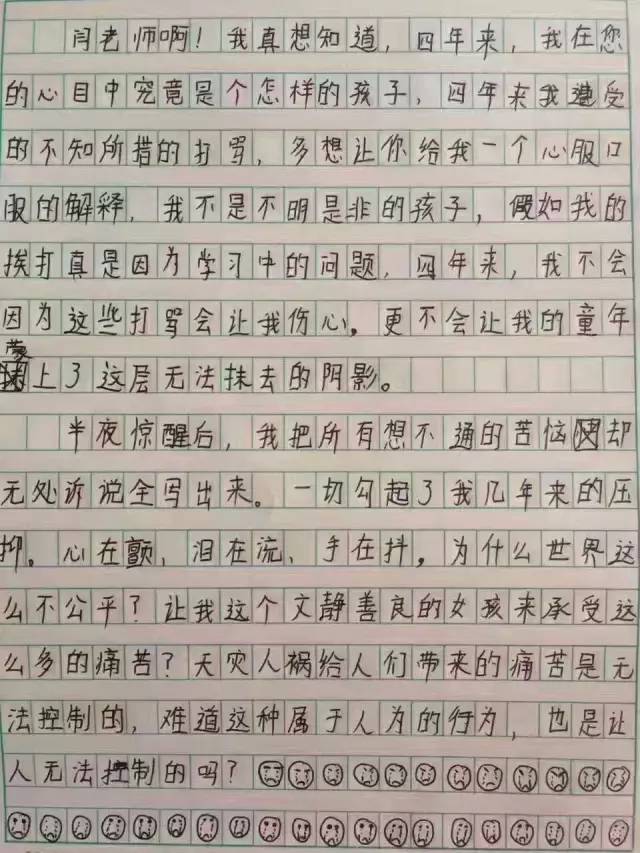 闫老师啊！我真想知道，四年来，我在您
的心目中究竟是个怎样的孩子，四年来我遭受
的不知所措的打骂，多想让你给我一个心服口
服的解释，我不是不明是非的孩子，假如我的
挨打真是因为学习中的问题，四年来，我不会
因为这些打骂会让我伤心。更不会让我的童年
蒙上了这层无法抹去的阴影。
半夜惊醒后，我把所有想不通的苦恼却
无处诉说全写出来。一切勾起了我几年来的压
抑。心在颤、泪在流、手在抖，为什么世界这
么不公平？让我这个文静善良的女孩来承受这
么多的痛苦？天灾人祸给人们带来的痛苦是无
法控制的，难道这种属于人为的行为，也是让
人无法控制的吗？